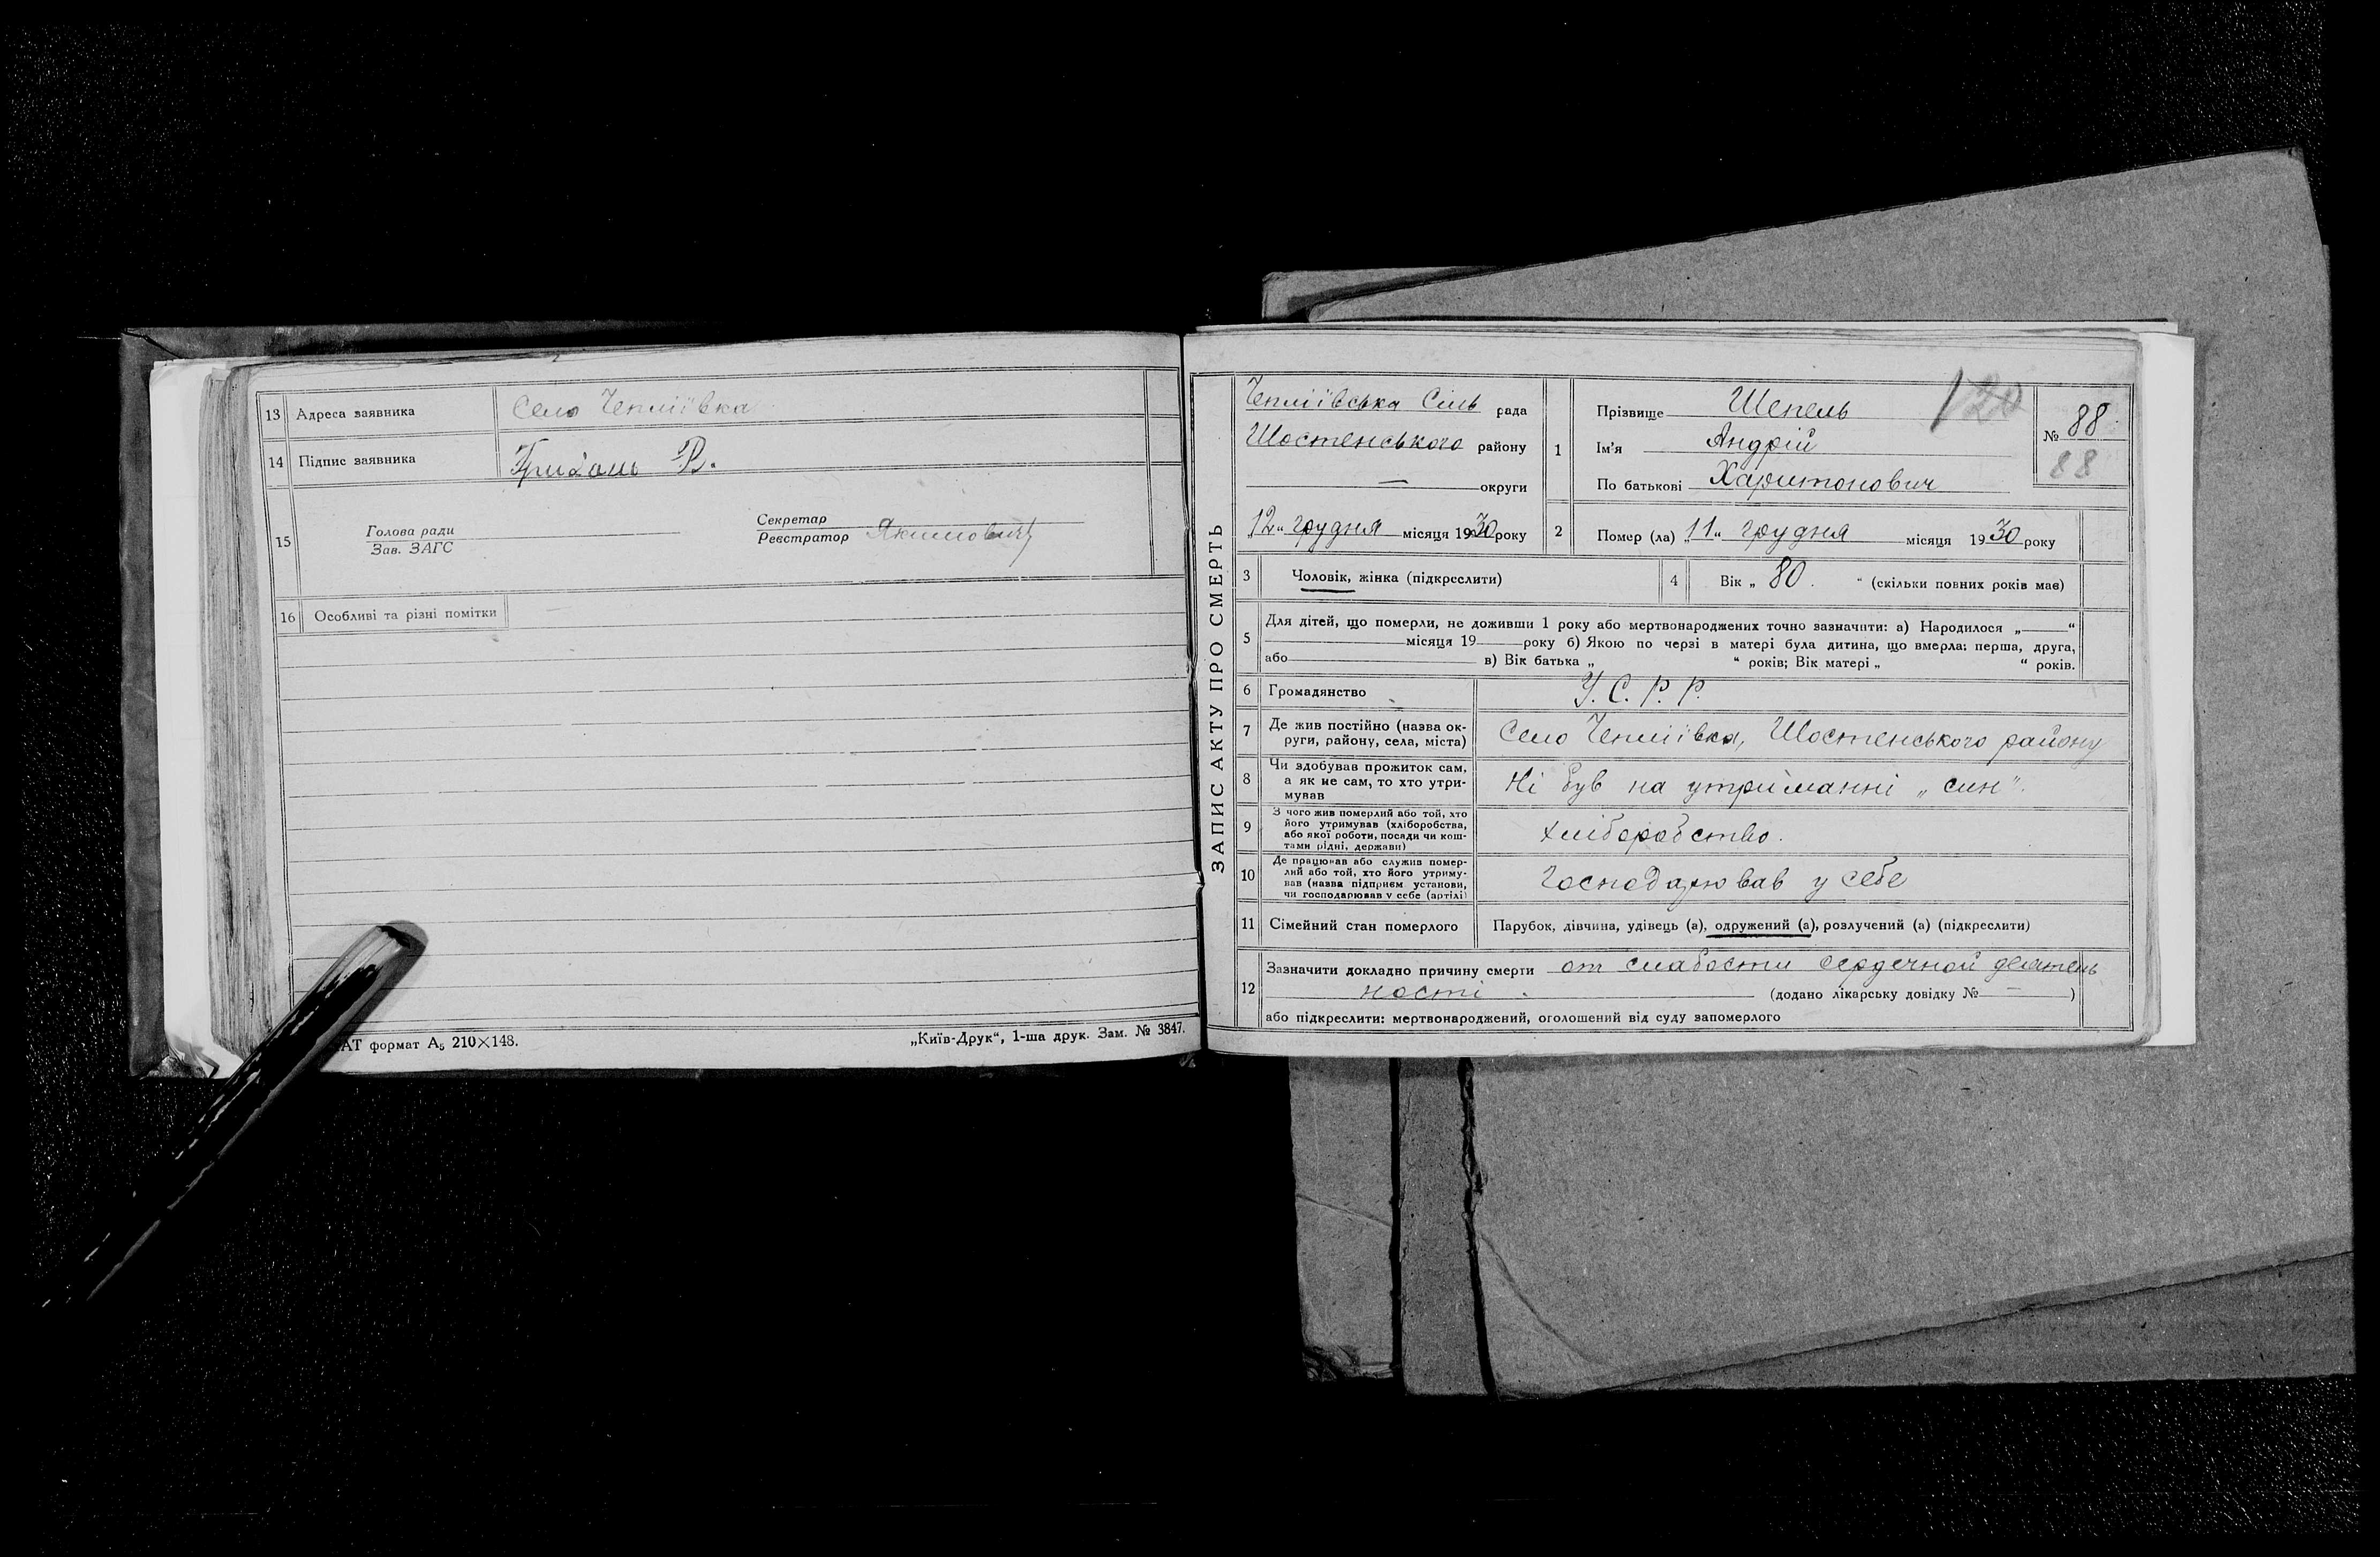 13 Адреса заявника Село Чепліївка
14 Підпис заявника В.
15 Голова ради
Зав. ЗАГС
Секретар
Реєстратор Якимович
16 Особливі та різні помітки
АТ формат А₅ 210×148.
„Київ-Друк“, 1-ша друк. Зам. № 3847.
ЗАПИС АКТУ ПРО СМЕРТЬ
Чепліївська Сіль рада
Шостенського району
— округи
„12“ грудня місяця 1930 року
1 Прізвище Шепель
Ім’я Андрій
По батькові Харитонович
120
№ 88
88
2 Помер (ла) „11“ грудня місяця 1930 року
3 Чоловік, жінка (підкреслити)
4 Вік „ 80. “ (скільки повних років має)
5 Для дітей, що померли, не доживши 1 року або мертвонароджених точно зазначити: а) Народилося „ “
місяця 19 року б) Якою по черзі в матері була дитина, що вмерла: перша, друга,
або в) Вік батька „ “ років; Вік матері „ “ років.
6 Громадянство У. С. Р. Р.
7 Де жив постійно (назва ок-
руги, району, села, міста) Село Чепліївка, Шостенського району
8 Чи здобував прожиток сам,
а як не сам, то хто утри-
мував Ні був на утриманні „син“.
9 З чого жив померлий або той, хто
його утримував (хліборобства,
або якої роботи, посади чи кош-
тами рідні, держави) хліборобство.
10 Де працював або служив помер-
лий або той, хто його утриму-
вав (назва підприєм установи,
чи господарював у себе (артілі) Господарював у себе
11 Сімейний стан померлого Парубок, дівчина, удівець (а), одружений (а), розлучений (а) (підкреслити)
12 Зазначити докладно причину смерти от слабости сердечной деятель
ності . (додано лікарську довідку № — )
або підкреслити: мертвонароджений, оголошений від суду запомерлого